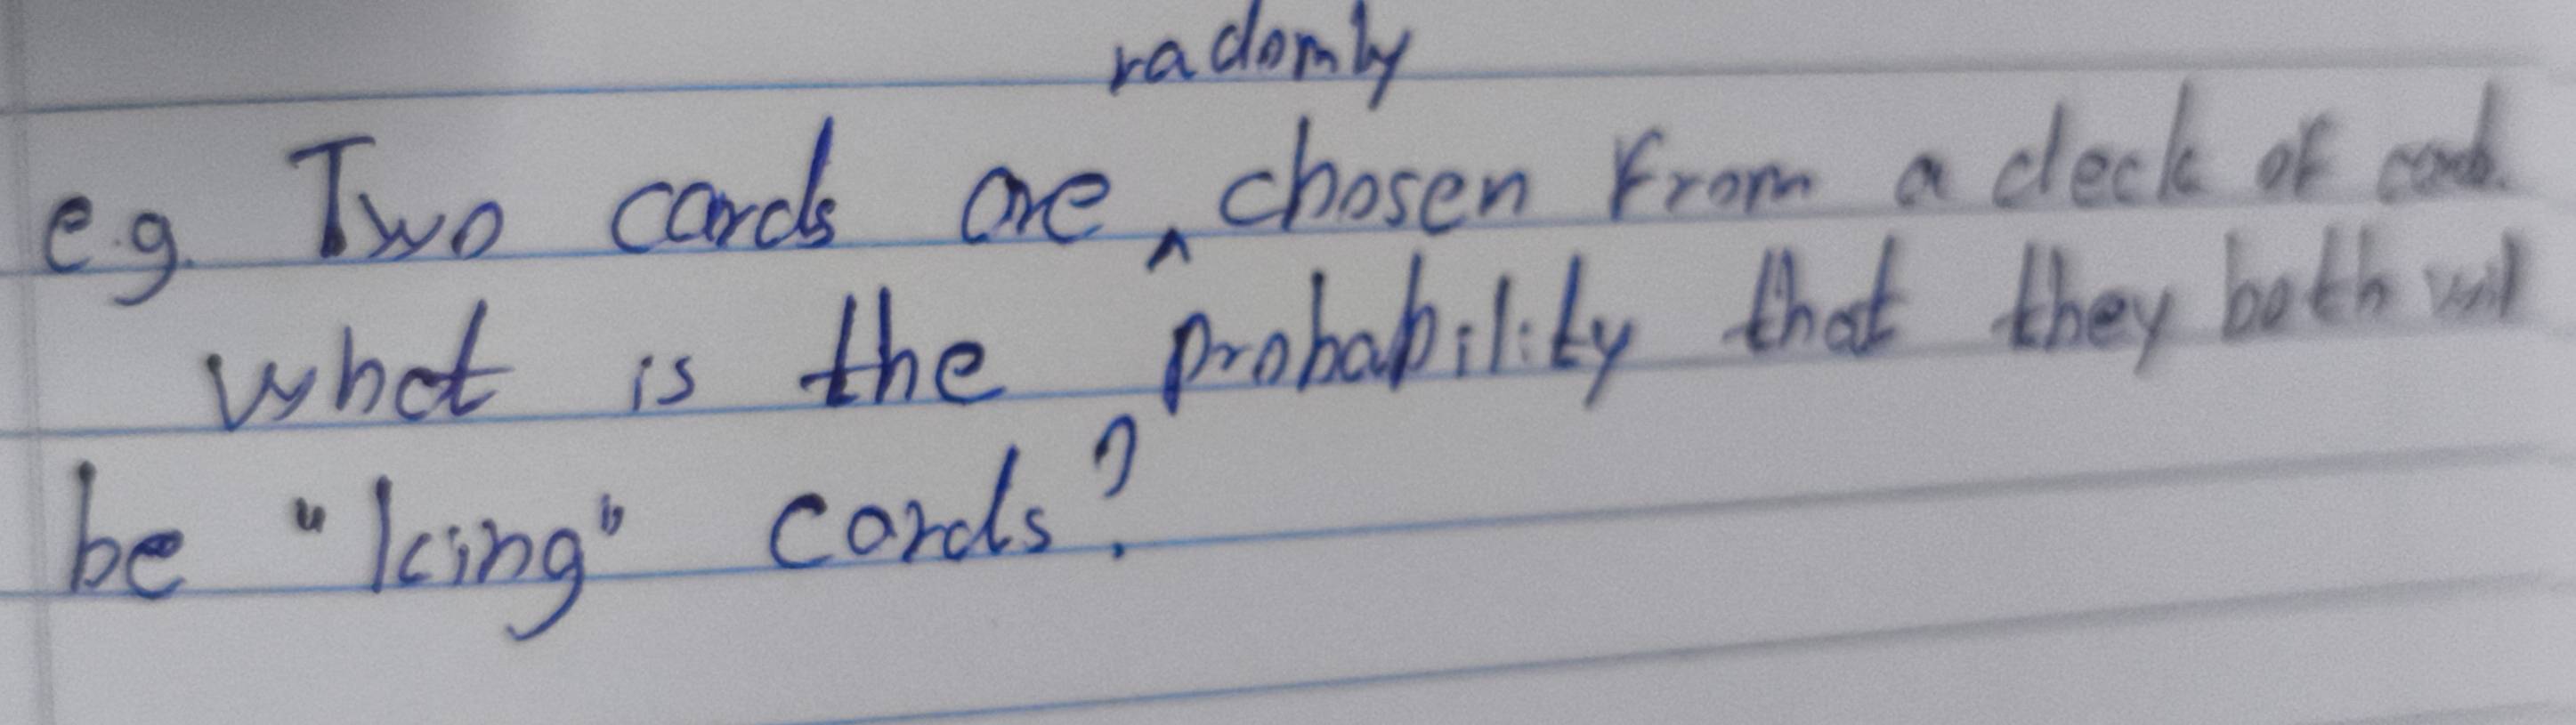 radomly
e.g. Two cards are ^ chosen from a deck of cards.
what is the probability that they both will
be "king" cards?